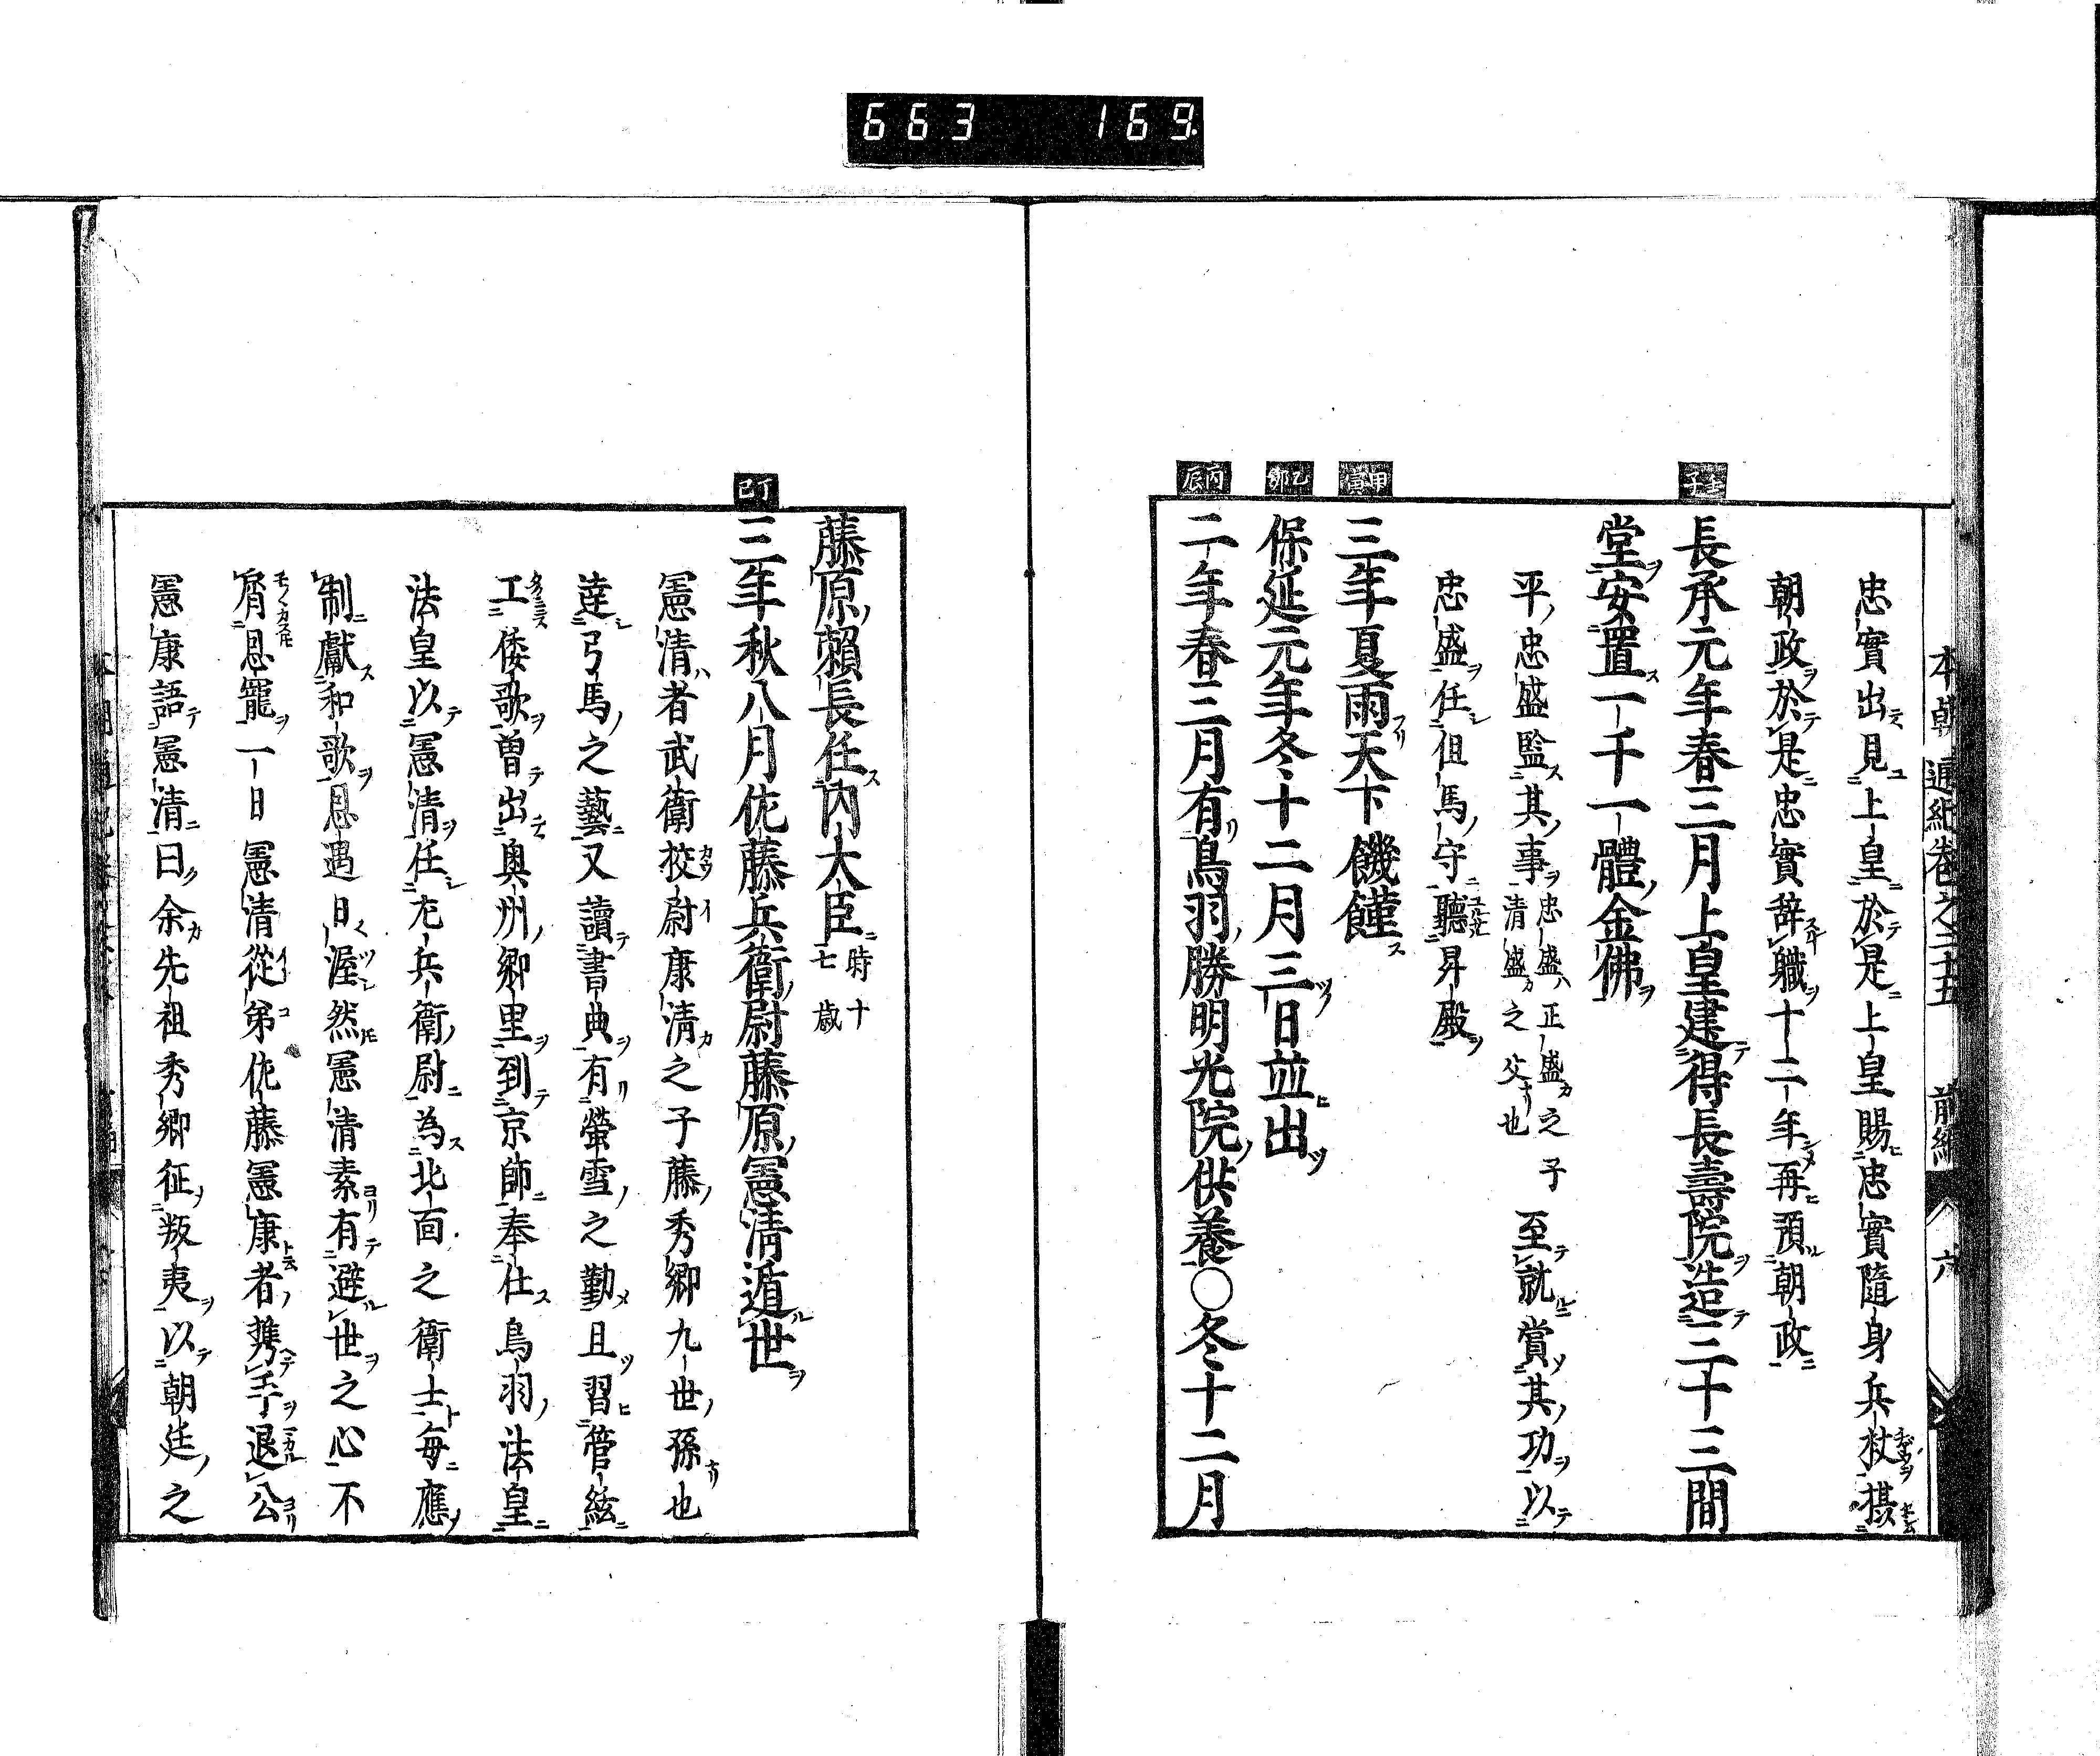 663 169
本朝通紀卷之二十五 前編 六
忠實出見上皇於是上皇賜忠實隨身兵杖摂
朝政於是忠實辞職十二年再預朝政
壬子
長承元年春三月上皇建得長壽院造三十三間
堂安置一千一體金佛
平忠盛監其事忠盛正盛之子清盛之父也至就賞其功以
忠盛任但馬守聽昇殿
甲寅
三年夏雨天下饑饉
乙卯
保延元年冬十二月三日並出
丙辰
二年春三月有鳥羽勝明光院供養〇冬十二月
藤原頼長任内大臣時十七歳
丁巳
三年秋八月佐藤兵衛尉藤原憲清遁世
憲清者武衛校尉康清之子藤秀卿九世孫也
達弓馬之藝又讀書典有螢雪之勤且習管絃
工倭歌曽出奥州郷里到京師奉仕鳥羽法皇
法皇以憲清任左兵衛尉為北面之衛士毎應
制獻和歌恩遇日渥然憲清素有避世之心不
屑恩寵一日憲清從弟佐藤憲康者携手退公
憲康語憲清曰余先祖秀卿征叛夷以朝廷之